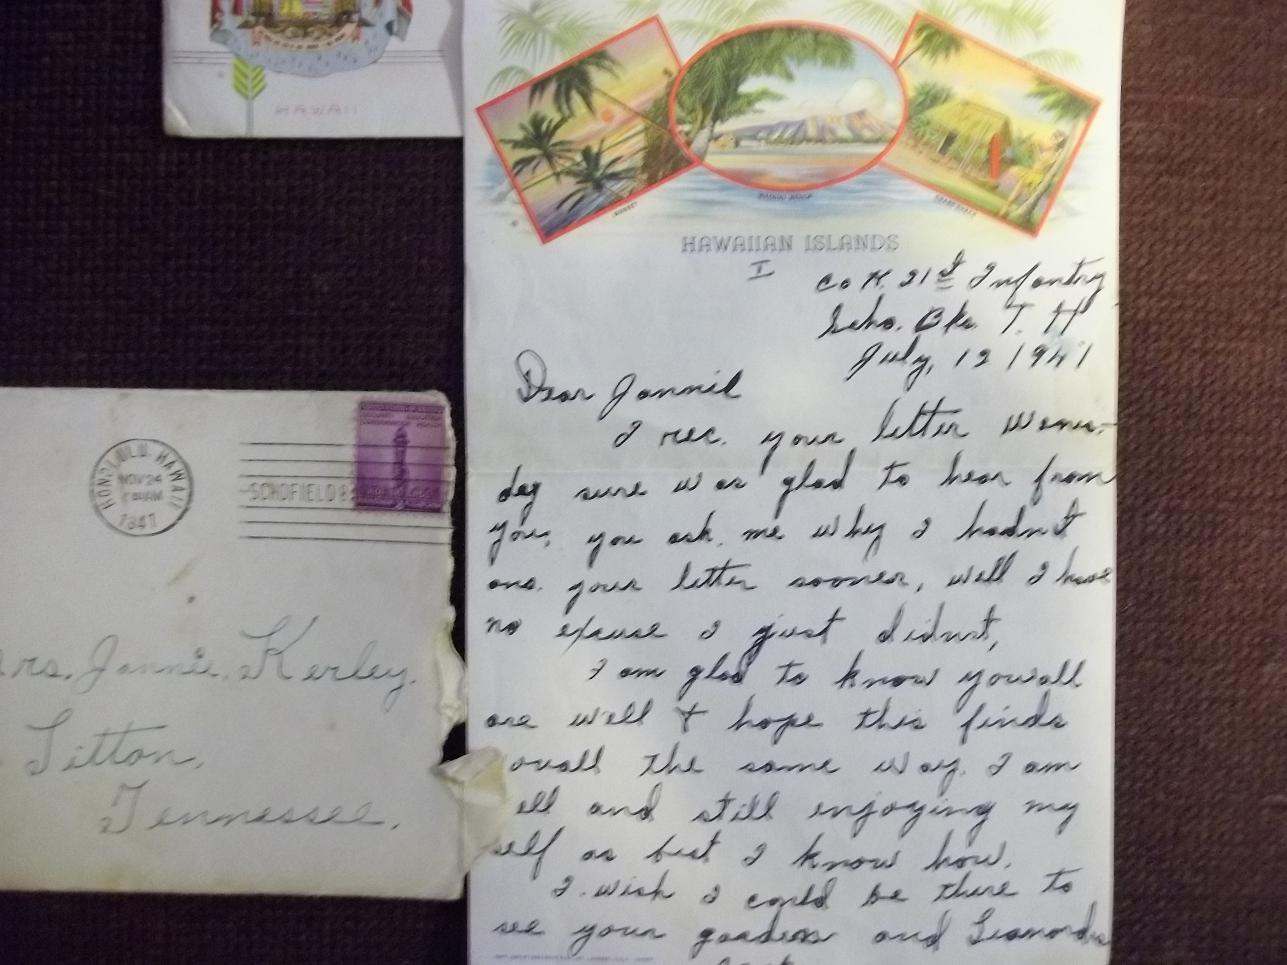 HAWAII
HONOLULU, HAWAII
NOV 24
1941
SCHOFIELD B
Mrs. Jannie Kerley.
Litton,
Tennessee.
SUNSET
DIAMOND HEAD
GRASS SHACK
HAWAIIAN ISLANDS
I
Co K. 21st Infantry
Scho. Bks. T. H
July, 12 1941
Dear Jannie
I rec. your letter Wens-
day sure was glad to hear from
you, you ask me why I hadnt
ans. your letter sooner, well I have
no excuse I just didnt,
I am glad to know youall
are well & hope this finds
ouall the same way. I am
ell and still enjoying my
self as best I know how.
I wish I could be there to
see your garden and Leamonds